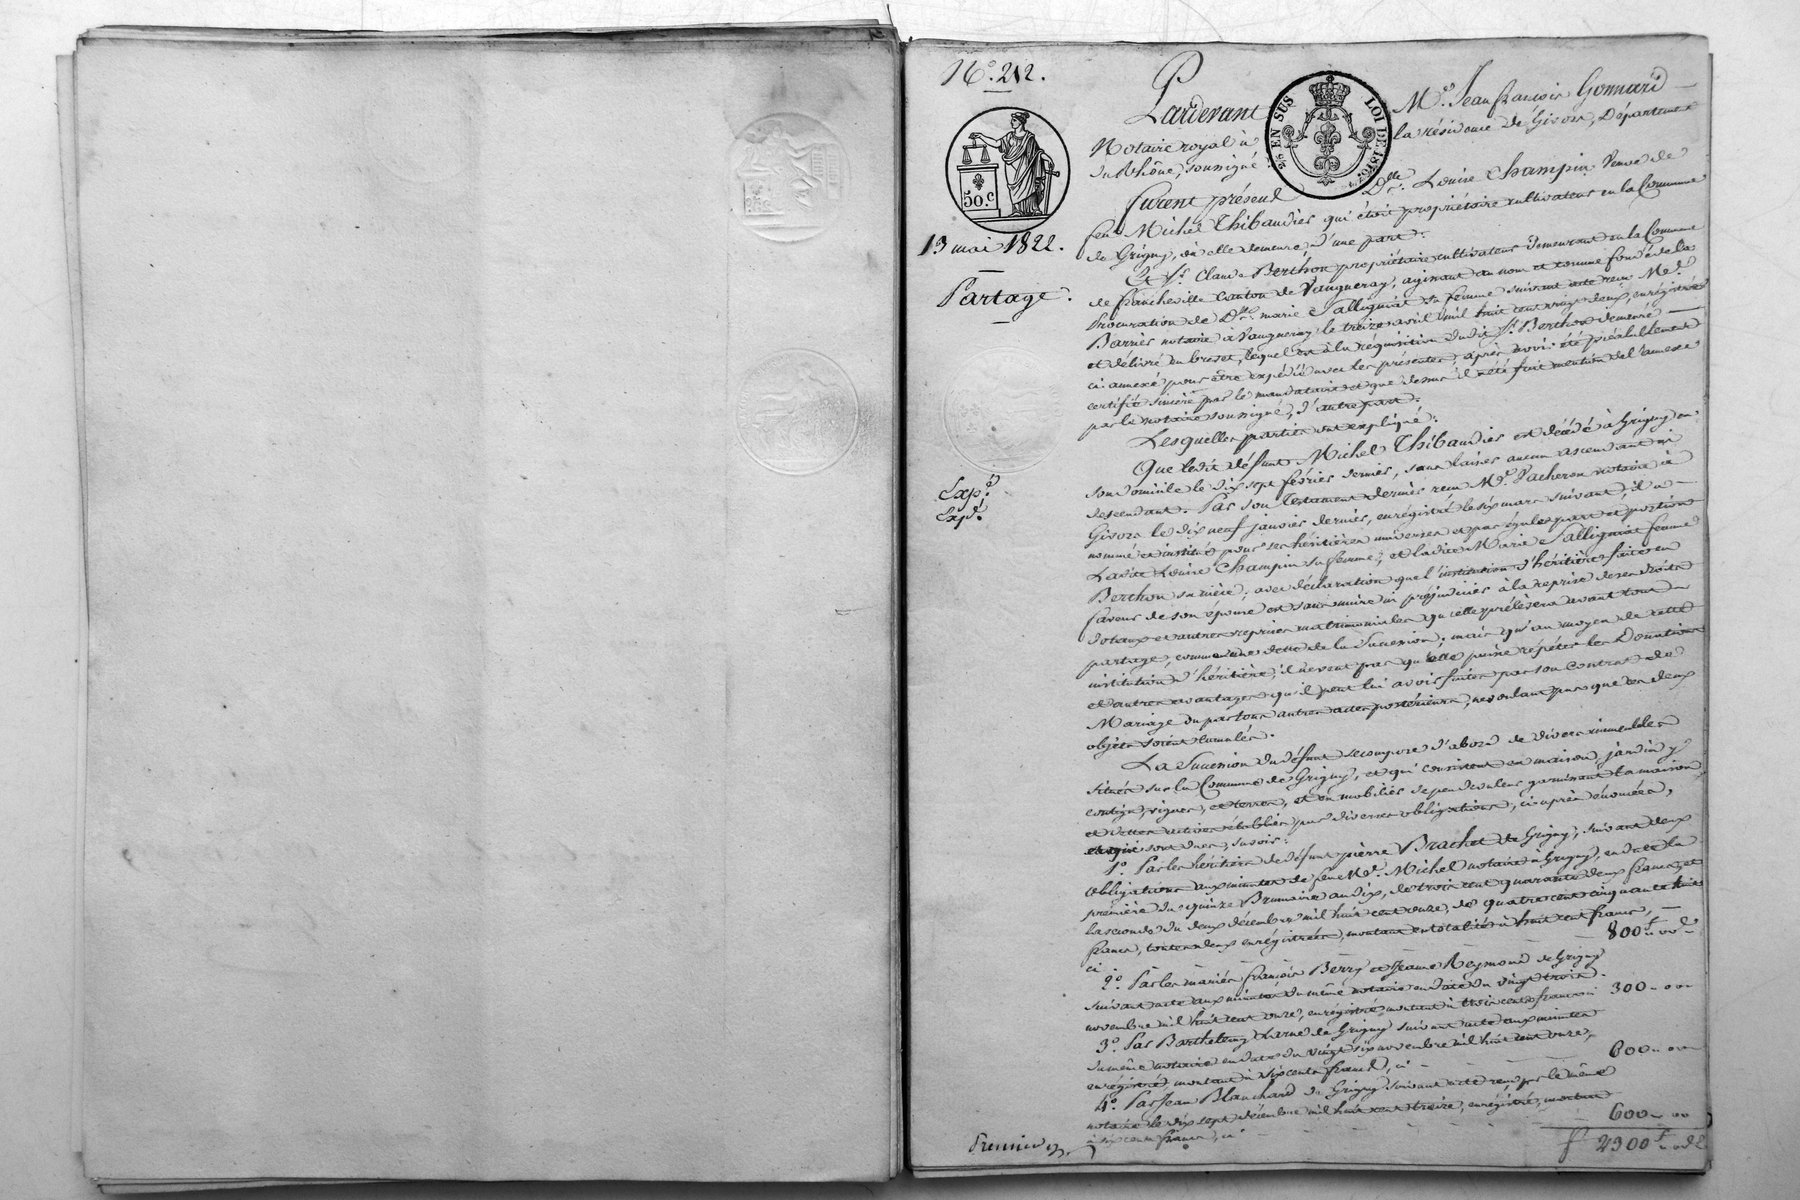 N.º 212.
50.c
13 mai 1822.
Partage.
Exp.é
Exp.é
EN SUS LOI DE 1816
Pardevant M.e Jean françois Gonnard
Notaire royal à la résidence de Givors, Département
du Rhône, soussigné
furent présens D.lle Louise Champin veuve de
feu Michel Thibaudier qui étoit propriétaire cultivateur en la Commune
de Grigny, où elle demeure, d'une part.
Et S.r Claude Berthon propriétaire cultivateur demeurant en la Commune
de francheville canton de Vaugneray, agissant au nom et comme fondé de la
Procuration de D.lle marie Salliquiat sa femme suivant acte reçu M.e
Barrier notaire à Vaugneray le treize avril mil huit cent vingt deux, enrégistré
et délivré en brevet, lequel est à la réquisition dudit S.r Berthon demeuré
ci annexé pour être expédié avec les présentes, après avoir été préalablement
certifié sincère par le mandataire et que dessus il a été fait mention de l'annexe
par le notaire soussigné, d'autre part.
Lesquelles parties ont expliqué:
Que ledit défunt Michel Thibaudier est décédé à Grigny en
son domicile le dix sept février dernier, sans laisser aucun ascendant ni
descendant. Par son testament dernier reçu M.e Vacheron notaire à
Givors le dix neuf janvier dernier, enrégistré le six mars suivant, il a
nommé et institué pour ses héritières universes et par égales part et portion
Ladite Louise Champin sa femme, et ladite Marie Salliquiat femme
Berthon sa nièce, avec déclaration que l'institution d'héritière faite en
faveur de son épouse est sans nuire ni préjudicier à la reprise de ses droits
dotaux et autres reprises matrimoniales qu'elle prélèvera avant tout
partage, comme une dette de la Succession; mais qu'au moyen de cette
institution d'héritière, il ne veut pas qu'elle puisse répéter les Donations
et autres avantages qu'il peut lui avoir faites par son contrat de
Mariage ou par tous autres actes postérieurs, ne voulant pas que ces deux
objets soient cumulés.
La Succession du défunt se compose d'abord de divers immeubles
situés sur la Commune de Grigny, et qui consistent en maison, jardin y
contigu, vignes, et terres, et en mobilier dependouleur garnissant la maison
et dettes actives établies par diverses obligations, ci après énoncées,
et qui sont dues, savoir:
1.º Par les héritiers de défunt pierre Brachet de Grigny, suivant deux
obligations aux minutes de feu M.e Michel notaire à Grigny, en date la
première du quinze Brumaire an dix, de trois cent quarante deux francs, et
la seconde du deux décembre mil huit cent onze, de quatre cent cinquante huit
francs, toutes deux enrégistrées, montant en totalité à huit cent francs,
ci 800.f 00.c
2.º Par les mariés françois Berry et Jeanne Reymond de Grigny
suivant acte aux minutes du même notaire en date du vingt trois
novembre mil huit cent onze, enrégistré montant à trois cents francs ci 300 00
3.º Par Barthelemy Charne de Grigny suivant acte aux minutes
du même notaire en date du vingt six novembre mil huit cent onze,
enrégistré, montant à six cents francs, ci 600 00
4.º Par Jean Blanchard de Grigny suivant acte reçu par le même
notaire le dix sept décembre mil huit cent treize, enrégistré, montant
à six cents francs, ci 600 00
f 2300.f 00.c
Premier